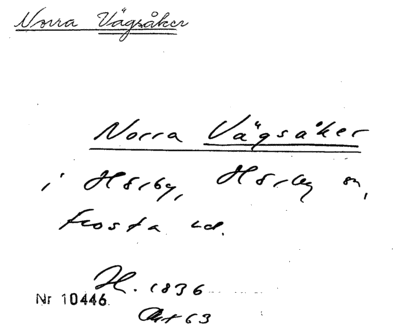 Norra Vägsåker
Norra Vägsåker
i Hörby, Hörby sn,
Frosta hd.
H. 1836
Nr 10446
Akt 63